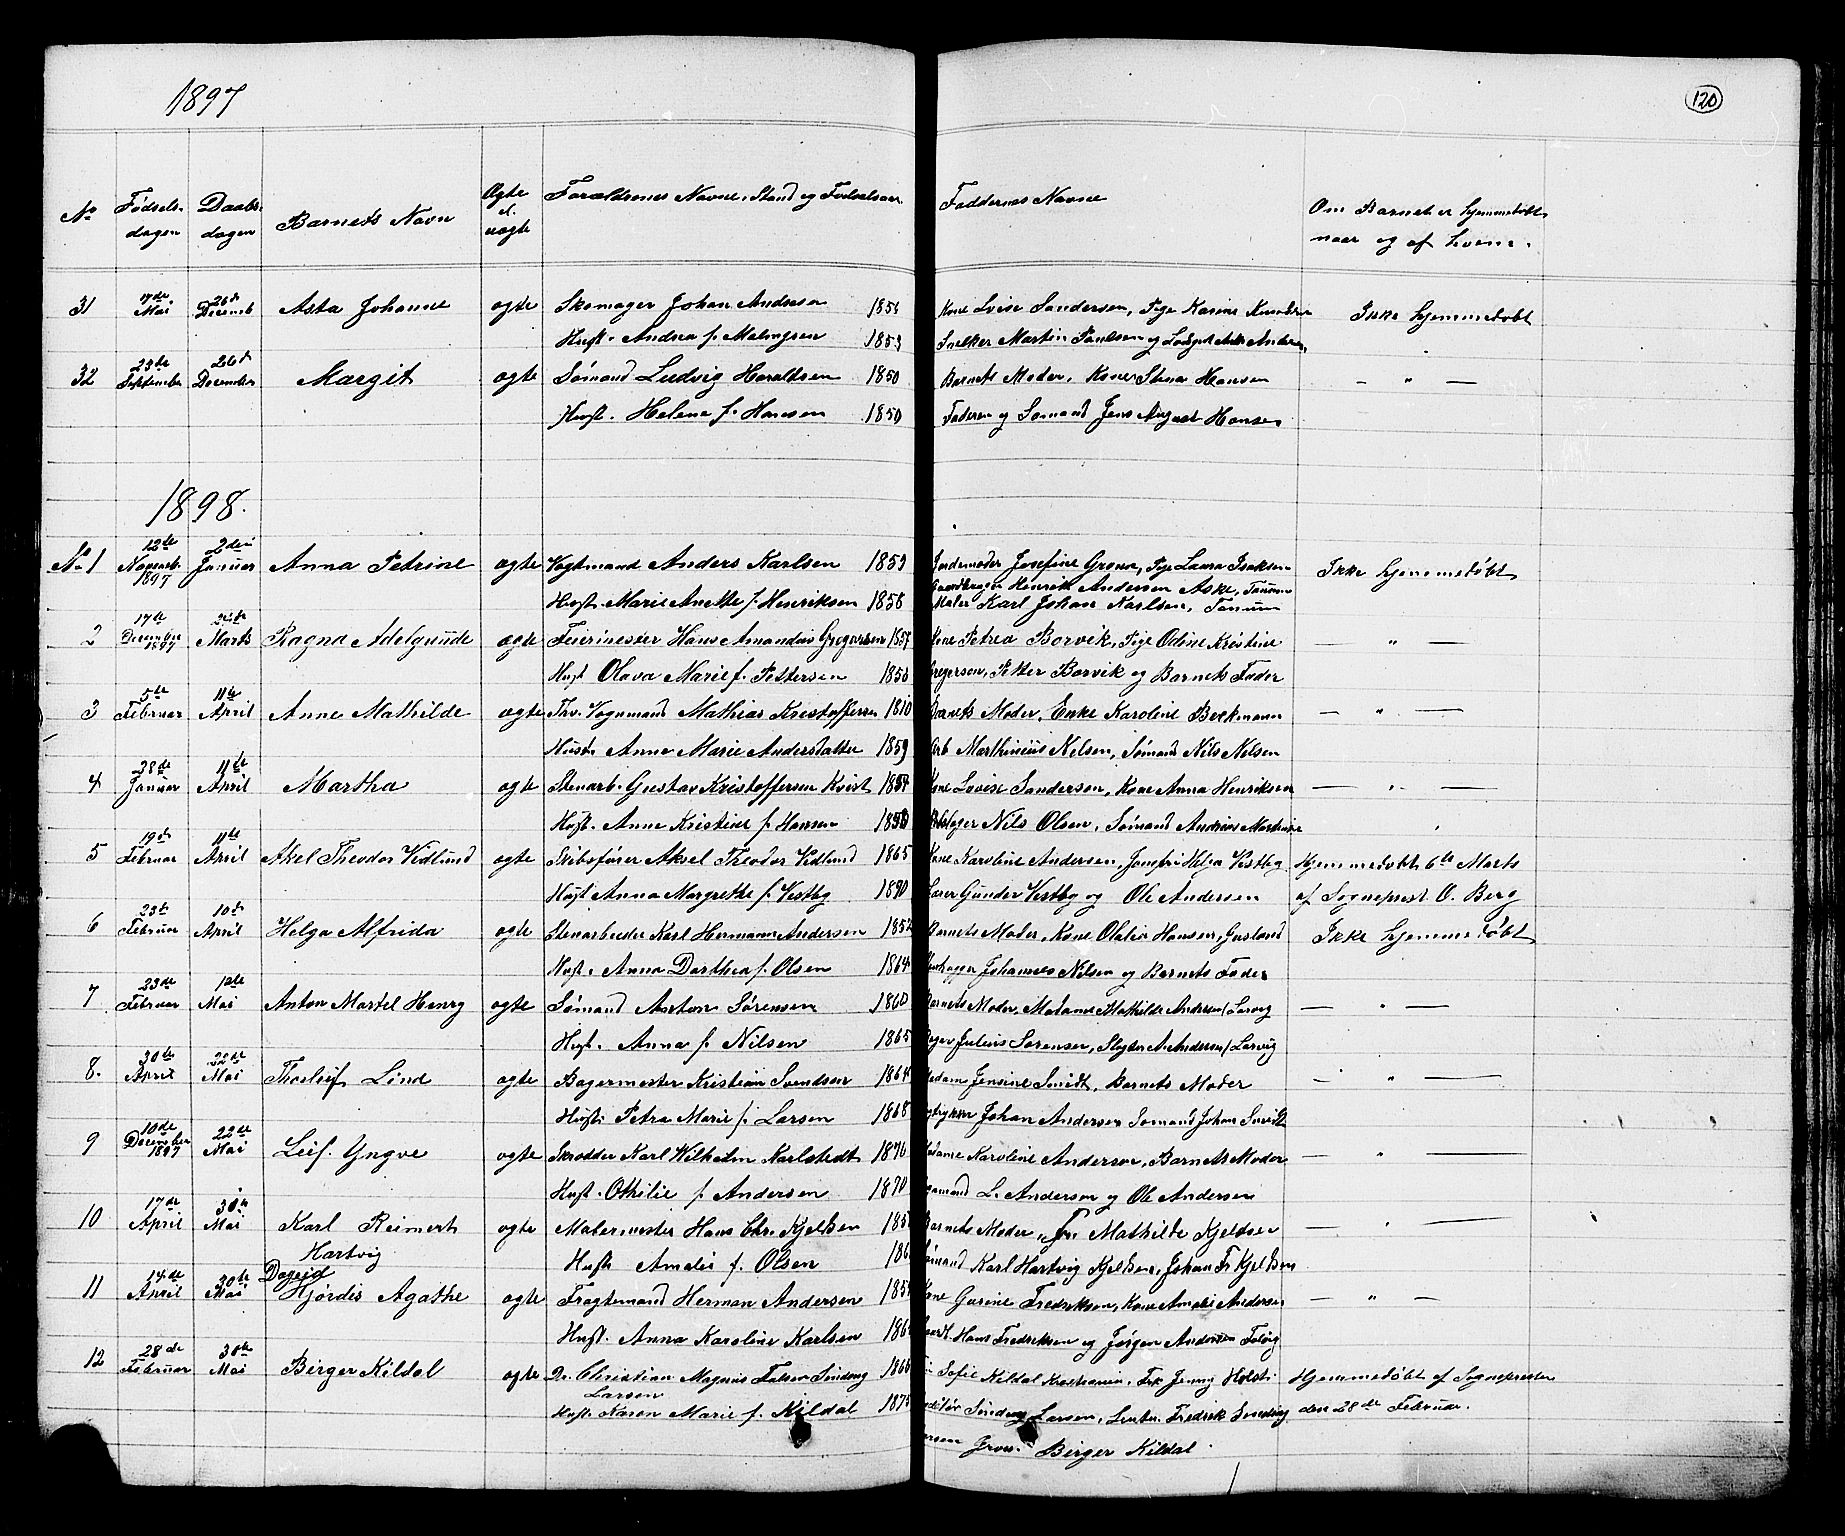 1897
120
No Fødsels- dagen Daabs- dagen Barnets Navn Ægte el. uægte Forældrenes Navne, Stand og Fødselsaar Faddernes Navne Om Barnet er hjemmedøbt naar og af hvem.
31 17de Mai 26de Decemb Asta Johanne ægte Skomager Johan Andresen Kone Lvise Sandersen, Pige Karine Ikke hjemmedøbt
Hust. Andrea f. Malmgren 1853 Snekker Martin Paulsen og
32 23de September 26de December Margit ægte Sømand Ludvig Haraldsen 1850 Barnets Moder, Kone Stina Hansen — " —
Hust. Helene f. Hansen 1850 Faderen og Sømand Jens August Hansen
1898.
No 1 12te Novemb. 1897 2den Januar Anna Petrine ægte Vogtmand Anders Karlsen 1853 Jordemoder Josefine Grønn, Pige Laura Isaksen Ikke hjemmedøbt
Gaardbruger Henrik Andersen Aske, Tanum
Hust. Marie Anette f. Henriksen 1858 Maler Karl Johan Karlsen, Tanum
2 17de December 1897 Marts Ragna Adelgunde ægte Feierinester Hans Amandus Gregersen 1857 Kone Petrea Borvik, Pige Odine Kristine — " —
Hust Olava Marie f. Pettersen 1856 Gregersen, Petter Borvik og Barnets Fader
3 5te Februar 11te April Anne Mathilde ægte Thv. Vognmand Mathias Kristoffersen 1810 Barnets Moder, Enke Karoline Beckmann — " —
Hustr. Anne Marie Andersdatter 1859 Arb Marthinius Nelsen, Sømand Nils Nelsen
4 28de Januar 11te April Martha ægte Stenarb. Gustav Kristoffersen Kvist Kone Lovise Sandersen, Kone Anna Henriksen — " —
Hust. Anne Kristine f. Hansen Nils Olsen, Sømand Andreas
5 19de Februar 11te April Axel Theodor Vidlund ægte Skibsfører Aksel Theodor Vidlund 1865 Kone Karoline Andersen, Jomfru Helga Vestby Hjemmedøbt 6te Marts
Hust Anna Margrethe f. Vestby 1870 Gunder Vestby og Ole Andersen af Sogneprest O. Berg
6 23de Februar 10de April Helga Alfrida ægte Stenarbeider Karl Herman Andersen 1852 Barnets Moder, Kone Olalia Hansen, Ikke hjemmedøbt
Hust. Anna Dorthea f. Olsen 1864 Johannes Nilsen og Barnets Fader
7 23de Februar Mai Anton Martel Henry ægte Sømand Anton Sørensen 1860 Barnets Moder, Madame Mathilde Andersen, Larvig — " —
Hust. Anna f. Nilsen 1865 Julius Sørensen, A. Andersen, Larvig
8. 30te April 22de Mai Thorleif Lind ægte Bagermester Kristian Svendsen 1864 Madam Jensine Smidt, Barnets Moder — " —
Hust. Petra Marie f. Larsen 1868 Johan Andersen Sømand Johan Smidt
9 10de December 1897 22de Mai Leif. Yngve ægte Skrædder Karl Wilhelm Karlstedt 1870 Madame Karoline Andersen, Barnets Moder — " —
Hust. Othilie f. Andersen 1870 L. Andersen og Ole Andersen
10 17de April 30te Mai Karl Reimert Hartvig ægte Malermester Hans Chr. Kjeldsen 185 Barnets Moder, Frn. Mathilde Kjeldsen — " —
Hustr Amalie f. Olsen 186 Sømand Karl Hartvig Kjeldsen, Johan Fr Kjeldsen
11 14de April 30te Mai Dagrid Hjørdis Agathe ægte Fragtemand Herman Andersen 185 Kone Gusine Fredriksen, Kone Amalie Andersen — " —
Hust. Anna Karoline Karlsen 186 Hans Fredriksen og Jørgen Andersen
12 28de Februar 30te Mai Birger Kildal ægte Dr. Christian Magnus Falsen Sinding Larsen 1866 Sofie Kildal Kristiania, Frk Jenny Holst Hjemmedøbt af Sognepresten
Hust. Karen Marie f. Kildal 187 Sinding Larsen, Fredrik Sinding den 28de Februar.
Larsen Birger Kildal.